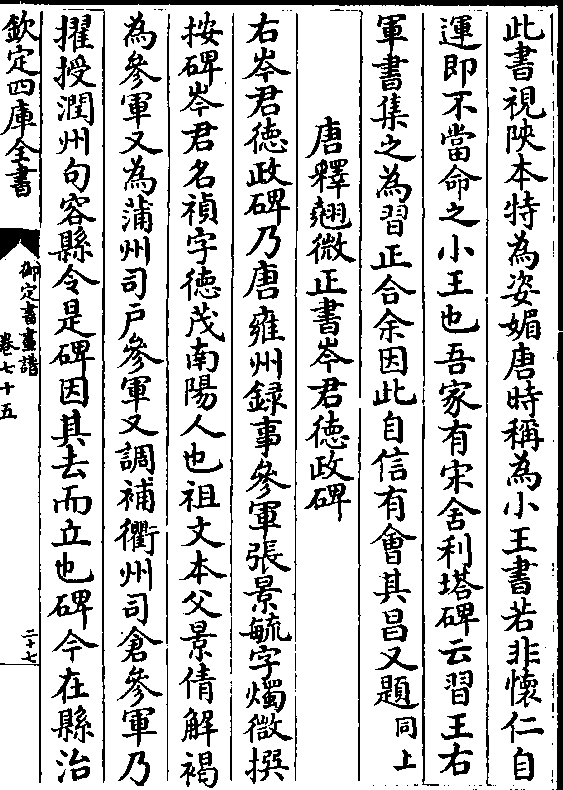 此書視陜本特為姿媚唐時稱為小王書若非懷仁自
運即不當命之小王也吾家有宋舍利塔碑云習王右
軍書集之為習正合余因此自信有會其昌又題同上
唐釋翹微正書岑君徳政碑
右岑君徳政碑乃唐雍州録事參軍張景毓字燭微撰
按碑岑君名禎字徳茂南陽人也祖文本父景倩解褐
為參軍又為蒲州司戸參軍又調補衢州司倉參軍乃
擢授潤州句容縣令是碑因其去而立也碑今在縣治
欽定四庫全書
御定書畫譜
卷七十五
二十七